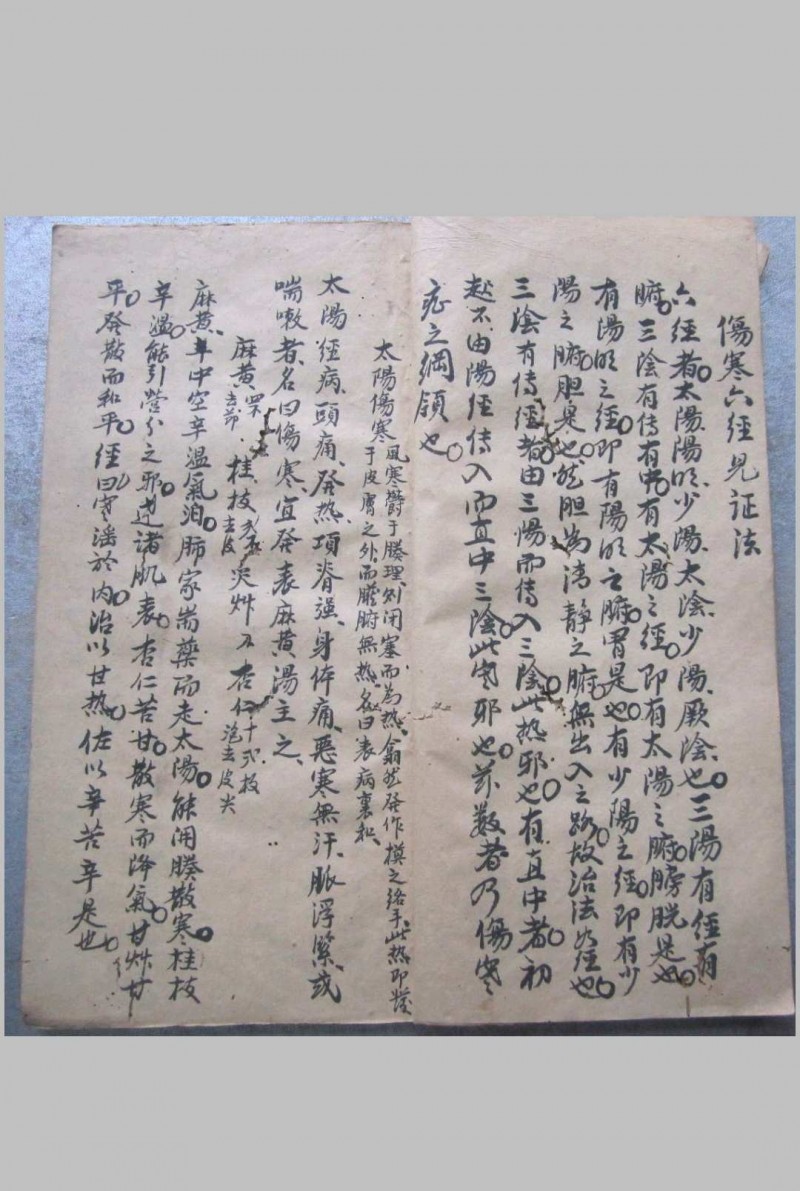 傷寒六經見证法
六經者太陽陽明少陽太陰少陽厥陰也三陽有經有
腑三陰有傳有中有太陽之經即有太陽之腑膀胱是也
有陽明之經即有陽明之腑胃是也有少陽之經即有少
陽之腑胆是也然胆為清静之腑無出入之路故治法如經也
三陰有傳經者由三陽而傳入三陰此热邪也有直中者初
起不由陽經傳入而直中三陰此寒邪也茲数者乃傷寒
症之綱領也
太陽傷寒 風寒欝于腠理則闭塞而為热翕然發作摸之络手此热即發
于皮膚之外而臓腑無热名曰表病裏和
太陽經病頭痛發热項脊强身体痛惡寒無汗脈浮緊或
喘嗽者名曰傷寒宜發表麻黄湯主之
麻黄 去節 桂枝 去皮 炙艸 杏仁 十弍枚 泡去皮尖
麻黄中空辛溫氣泊肺家耑藥而走太陽能開腠散寒桂枝
辛溫能引營分之邪達諸肌表杏仁苦甘散寒而降氣甘艸甘
平發散而和平經曰寒淫於内治以甘热佐以辛苦辛是也